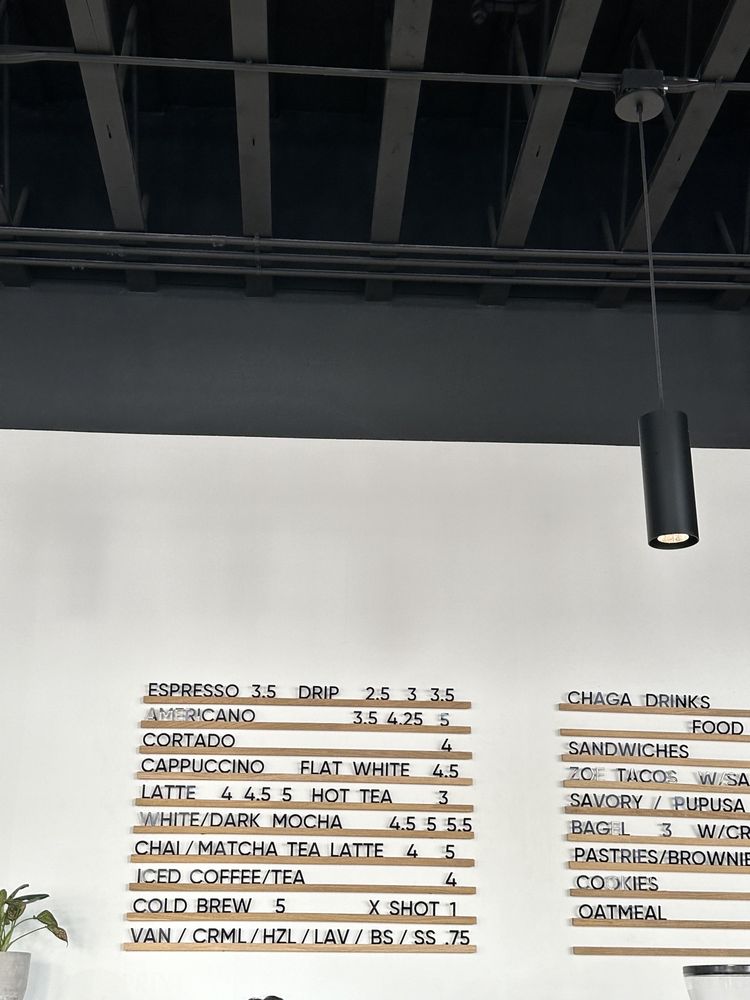 ESPRESSO 3.5 DRIP 2.5 3 3.5
AMERICANO 3.5 4.25 5
CORTADO 4
CAPPUCCINO FLAT WHITE 4.5
LATTE 4 4.5 5 HOT TEA 3
WHITE/DARK MOCHA 4.5 5 5.5
CHAI / MATCHA TEA LATTE 4 5
ICED COFFEE/TEA 4
COLD BREW 5 X SHOT 1
VAN / CRML / HZL / LAV / BS / SS .75
CHAGA DRINKS
FOOD
SANDWICHES
ZOE TACOS W/SA
SAVORY / PUPUSA
BAGEL 3 W/CR
PASTRIES/BROWNIE
COOKIES
OATMEAL